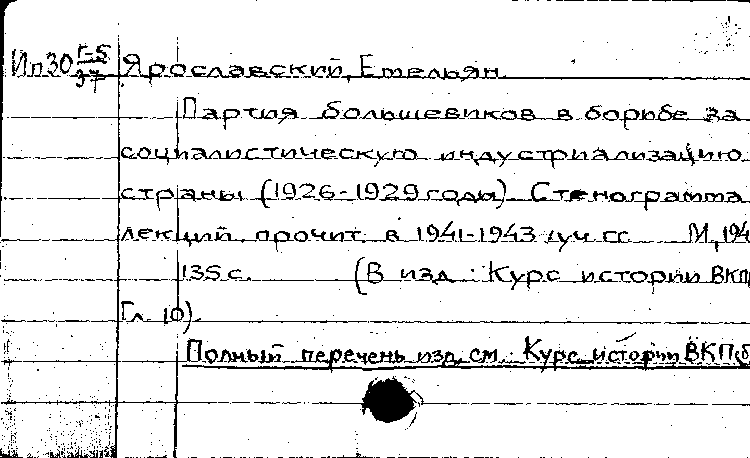 Ип30 Г-5/37 Ярославский, Емельян.
Партия большевиков в борьбе за
социалистическую индустриализацию
страны (1926-1929 годы). Стенограмма
лекций, прочит. в 1941-1943 /уч. гг. М, 194
135 с. (В изд.: Курс истории ВКП
Гл. 10).
Полный перечень изд. см.: Курс истории ВКП(б